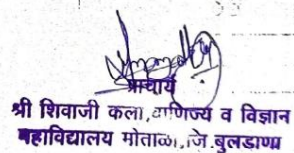 प्राचार्य
श्री शिवाजी कला, वाणिज्य व विज्ञान
महाविद्यालय मोताळा, जि.बुलडाणा